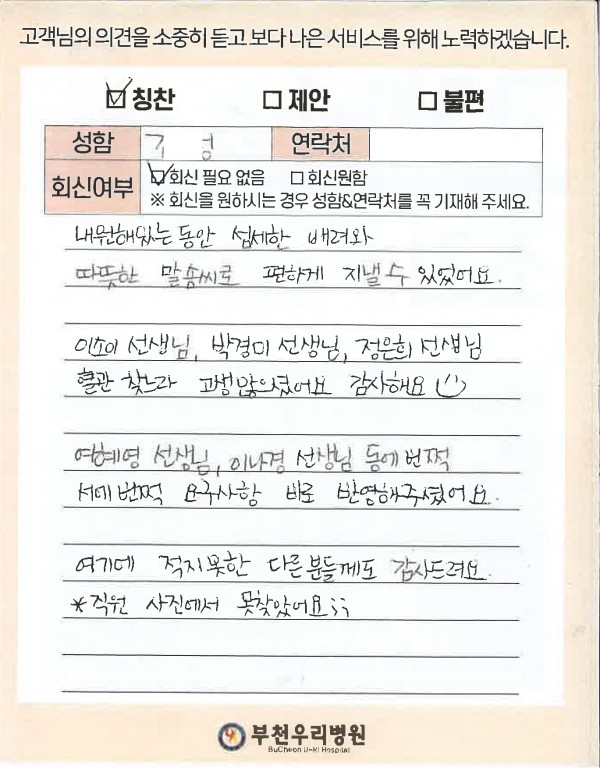 고객님의 의견을 소중히 듣고 보다 나은 서비스를 위해 노력하겠습니다.
칭찬 제안 불편
성함 연락처
회신여부 회신 필요 없음 회신원함
※ 회신을 원하시는 경우 성함&연락처를 꼭 기재해 주세요.
내원해있는 동안 섬세한 배려와
따뜻한 말솜씨로 편하게 지낼 수 있었어요.
이소이 선생님, 박경미 선생님, 정은희 선생님
혈관 찾느라 고생많으셨어요 감사해요
여혜영 선생님, 이나경 선생님 동에번쩍
서에번쩍 요구사항 바로 반영해주셨어요.
여기에 적지못한 다른분들께도 감사드려요.
*직원 사진에서 못찾았어요;;
부천우리병원
BuCheon U-Ri Hospital